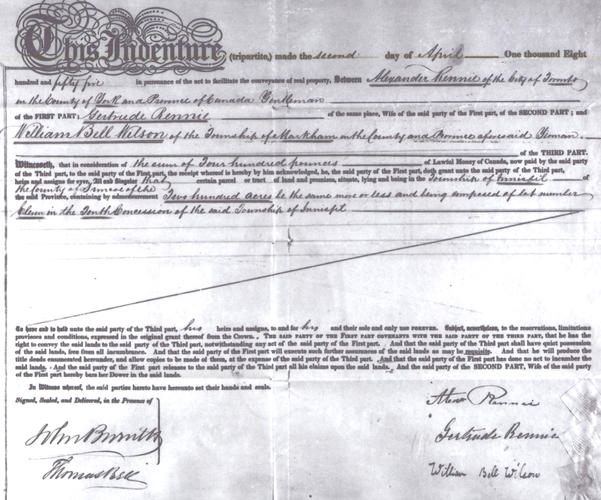 This Indenture (tripartite,) made the second day of April One thousand Eight
hundred and fifty five in pursuance of the act to facilitate the conveyance of real property, Between Alexander Rennie of the City of Toronto
in the County of York and Province of Canada Gentleman
of the FIRST PART; Gertrude Rennie of the same place, Wife of the said party of the First part, of the SECOND PART; and
William Bell Wilson of the Township of Markham in the County and Province aforesaid Yeoman
of the THIRD PART.
Witnesseth, that in consideration of the sum of Four hundred pounds of Lawful Money of Canada, now paid by the said party
of the Third part, to the said party of the First part, the receipt whereof is hereby by him acknowledged, he, the said party of the First part, doth grant unto the said party of the Third part,
heirs and assigns for ever, All and Singular that certain parcel or tract of land and premises, situate, lying and being in the Township of Innisfil of
the County of Simcoe of the
the said Province, containing by admeasurement Two hundred acres be the same more or less and being composed of lot number
in the Tenth Concession of the said Township of Innisfil
To have and to hold unto the said party of the Third part, his heirs and assigns, to and for his and their sole and only use FOREVER. Subject, nevertheless, to the reservations, limitations
provisoes and conditions, expressed in the original grant thereof from the Crown. THE SAID PARTY OF THE FIRST PART COVENANTS WITH THE SAID PARTY OF THE THIRD PART, that he has the
right to convey the said lands to the said party of the Third part, notwithstanding any act of the said party of the First part. And that the said party of the Third part shall have quiet possession
of the said lands, free from all incumbrance. And that the said party of the First part will execute such further assurances of the said lands as may be requisite. And that he will produce the
title deeds enumerated hereunder, and allow copies to be made of them, at the expense of the said party of the Third part. And that the said party of the First part has done no act to incumber the
said lands. And the said party of the First part releases to the said party of the Third part all his claims upon the said lands. And the said party of the SECOND PART, Wife of the said party
of the First part hereby bars her Dower in the said lands.
In Witness whereof, the said parties hereto have hereunto set their hands and seals.
Signed, Sealed, and Delivered, in the Presence of
Alexr Rennie
John
Gertrude Rennie
Thomas Bell
William Bell Wilson